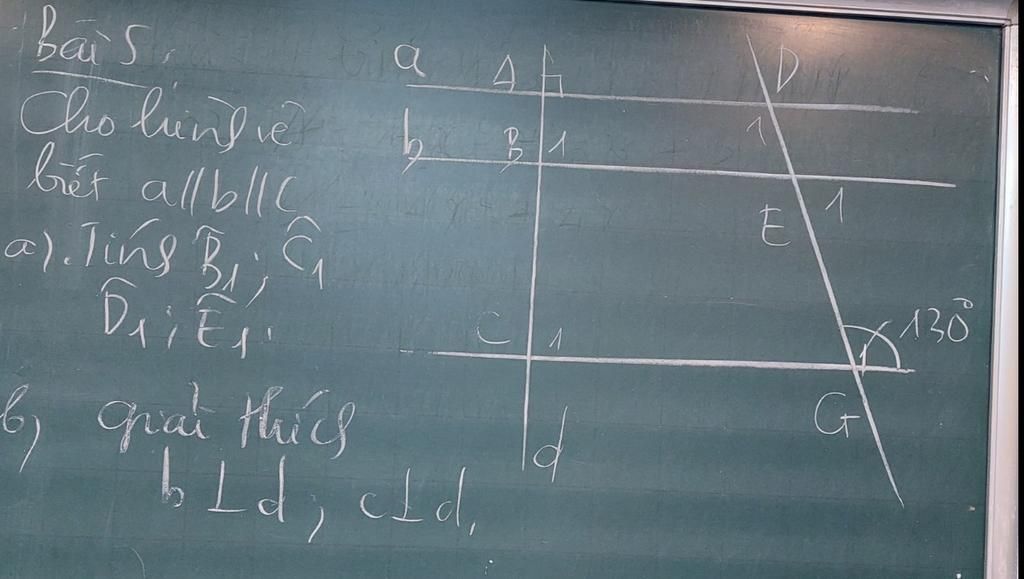 Bài 5:
Cho hình vẽ
biết a//b//c
a). Tính B̂₁; Ĉ₁
D̂₁; Ê₁.
b, giải thích
b⊥d; c⊥d.
a
A
D
b
B 1
1
E
1
C 1
1
130°
G
d